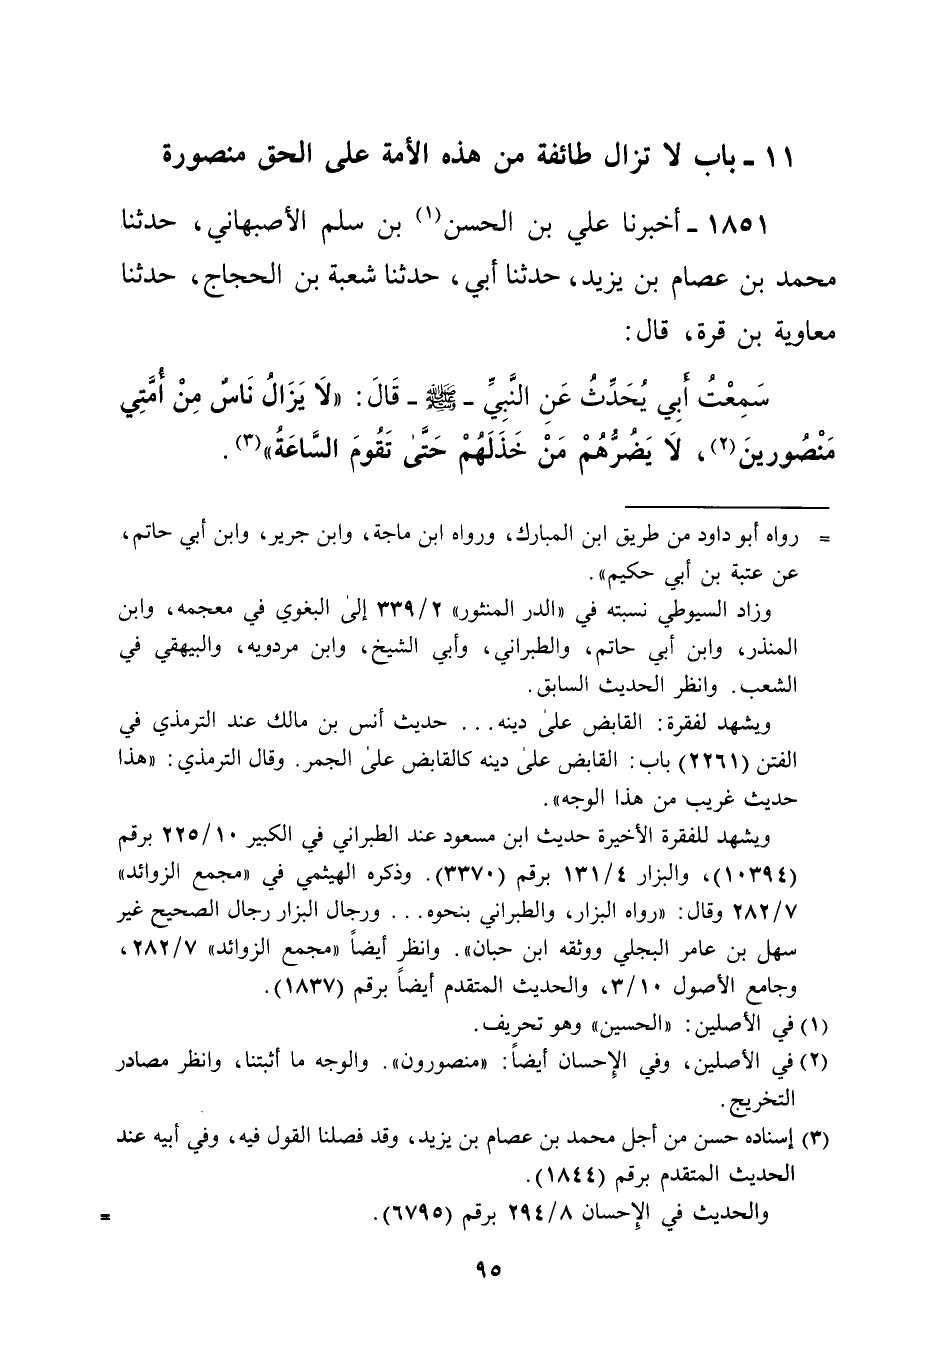 ١١ - باب لا تزال طائفة من هذه الأمة على الحق منصورة
١٨٥١ - أخبرنا علي بن الحسن(١) بن سلم الأصبهاني، حدثنا
محمد بن عصام بن يزيد، حدثنا أبي، حدثنا شعبة بن الحجاج، حدثنا
معاوية بن قرة، قال:
سَمِعْتُ أَبِي يُحَدِّثُ عَنِ النَّبِيِّ - ﷺ - قَالَ: «لَا يَزَالُ نَاسٌ مِنْ أُمَّتِي
مَنْصُورِينَ(٢)، لَا يَضُرُّهُمْ مَنْ خَذَلَهُمْ حَتَّىٰ تَقُومَ السَّاعَةُ»(٣).
= رواه أبو داود من طريق ابن المبارك، ورواه ابن ماجة، وابن جرير، وابن أبي حاتم،
عن عتبة بن أبي حكيم».
وزاد السيوطي نسبته في «الدر المنثور» ٣٣٩/٢ إلىٰ البغوي في معجمه، وابن
المنذر، وابن أبي حاتم، والطبراني، وأبي الشيخ، وابن مردويه، والبيهقي في
الشعب. وانظر الحديث السابق.
ويشهد لفقرة: القابض علىٰ دينه... حديث أنس بن مالك عند الترمذي في
الفتن (٢٢٦١) باب: القابض علىٰ دينه كالقابض علىٰ الجمر. وقال الترمذي: «هذا
حديث غريب من هذا الوجه».
ويشهد للفقرة الأخيرة حديث ابن مسعود عند الطبراني في الكبير ٢٢٥/١٠ برقم
(١٠٣٩٤)، والبزار ١٣١/٤ برقم (٣٣٧٠). وذكره الهيثمي في «مجمع الزوائد»
٢٨٢/٧ وقال: «رواه البزار، والطبراني بنحوه... ورجال البزار رجال الصحيح غير
سهل بن عامر البجلي ووثقه ابن حبان». وانظر أيضاً «مجمع الزوائد» ٢٨٢/٧،
وجامع الأصول ٣/١٠، والحديث المتقدم أيضاً برقم (١٨٣٧).
(١) في الأصلين: «الحسين» وهو تحريف.
(٢) في الأصلين، وفي الإحسان أيضاً: «منصورون». والوجه ما أثبتنا، وانظر مصادر
التخريج.
(٣) إسناده حسن من أجل محمد بن عصام بن يزيد، وقد فصلنا القول فيه، وفي أبيه عند
الحديث المتقدم برقم (١٨٤٤).
والحديث في الإحسان ٢٩٤/٨ برقم (٦٧٩٥). =
٩٥